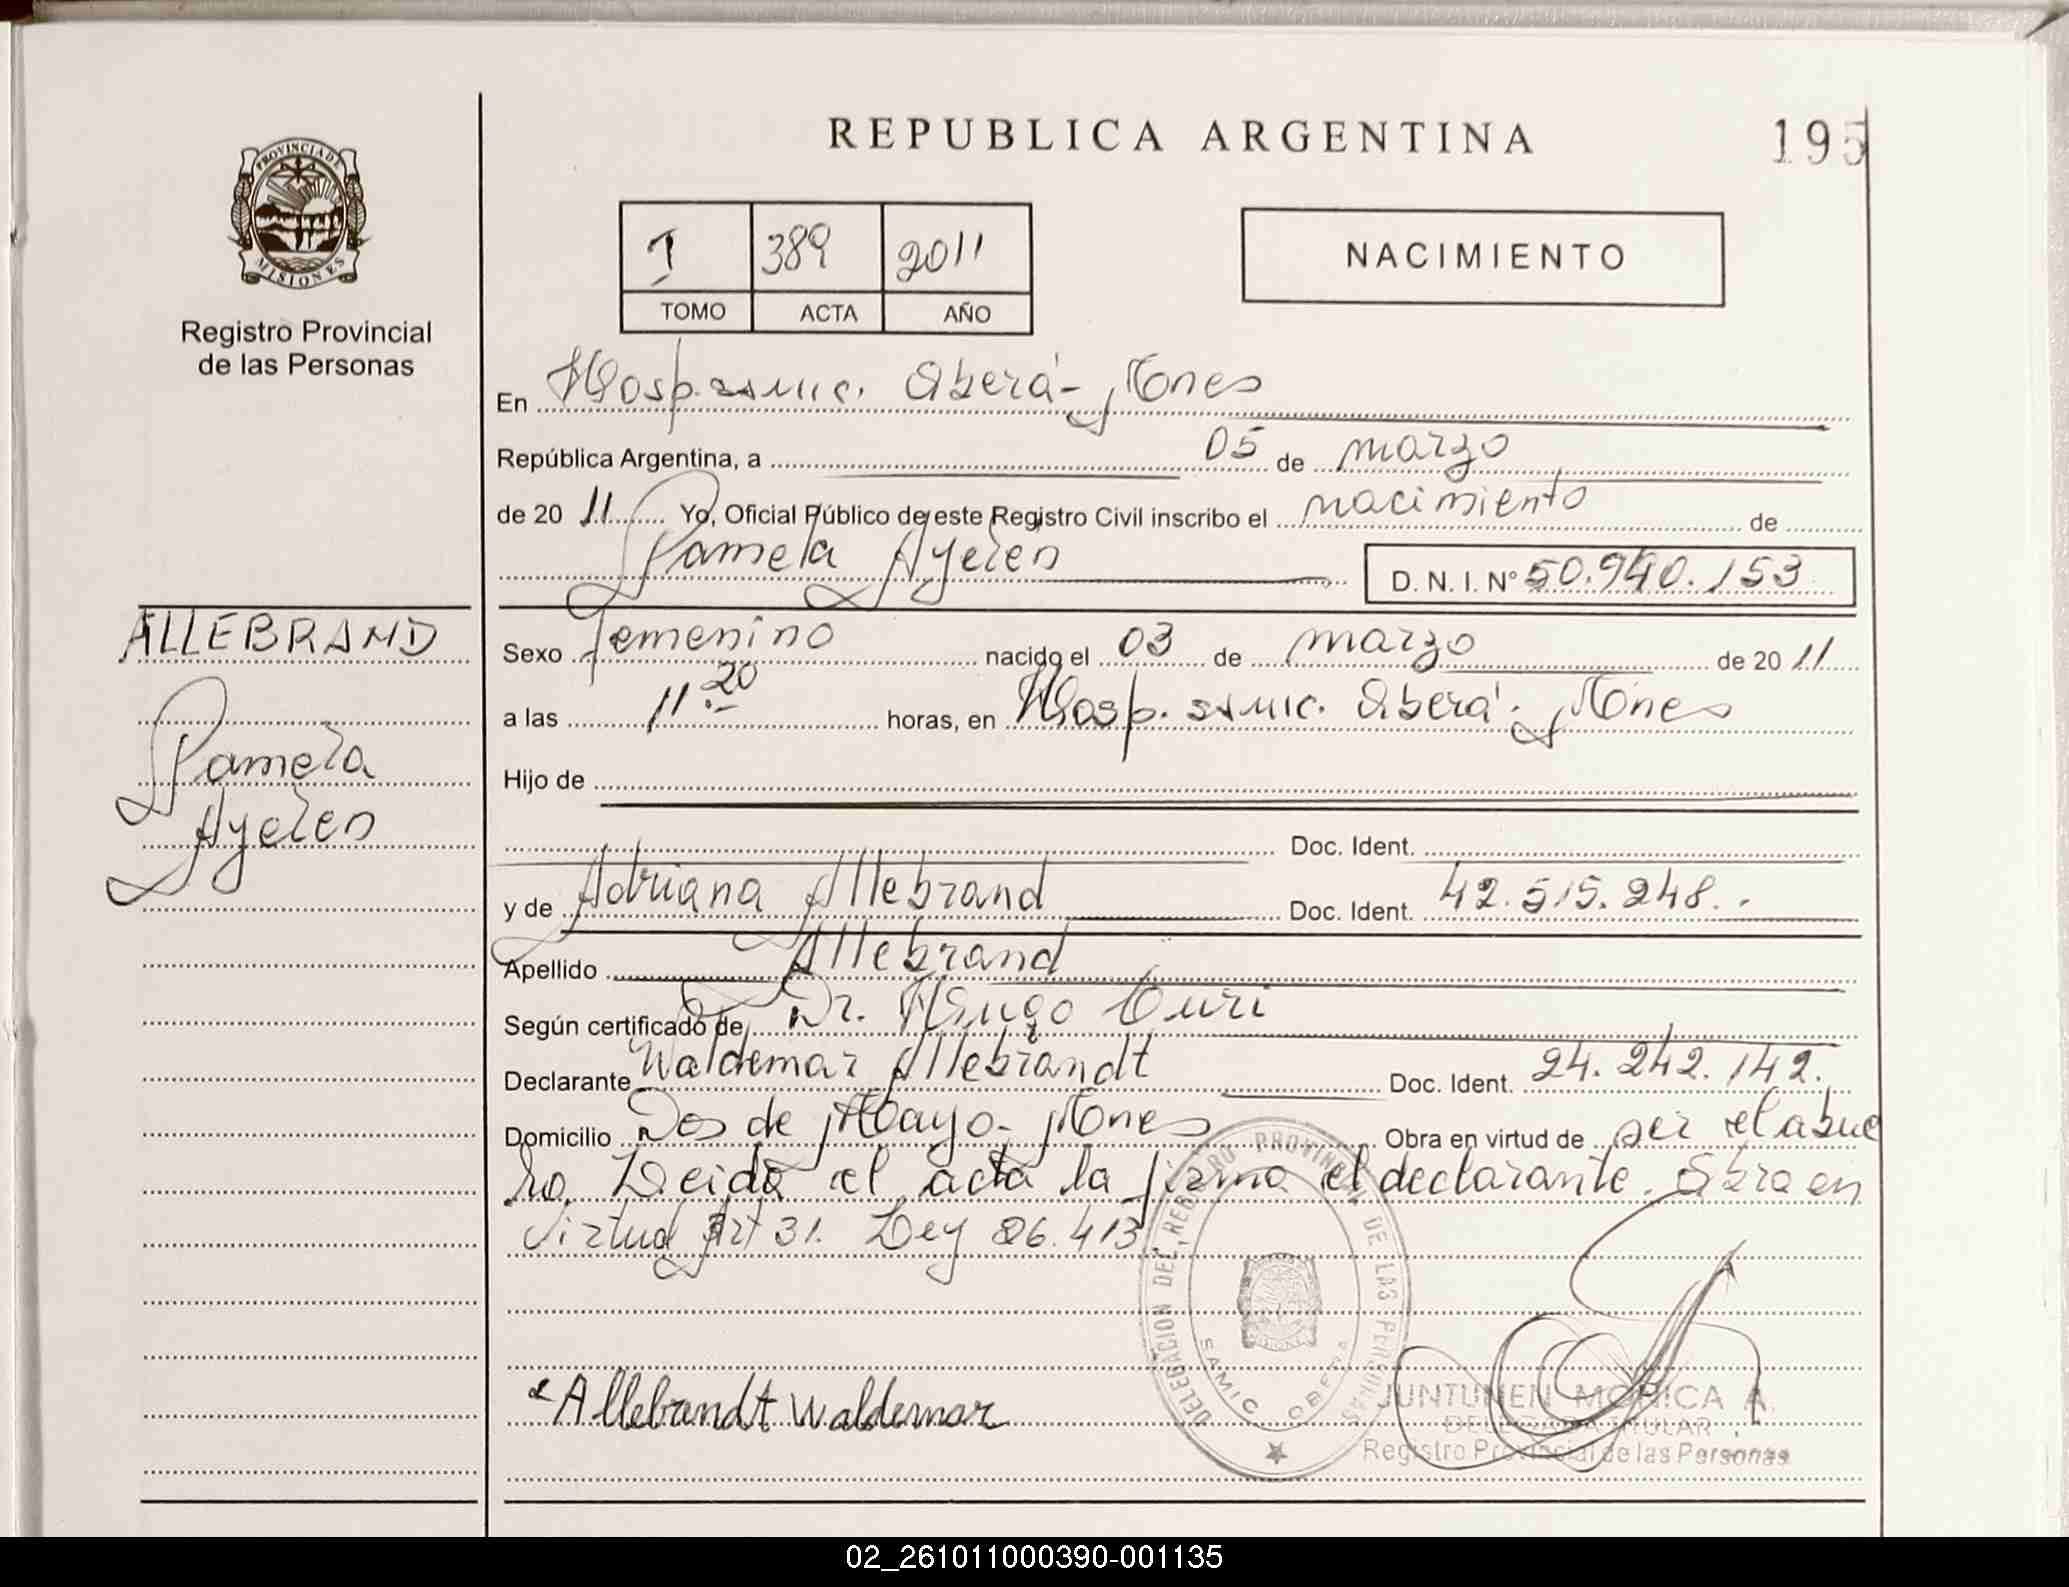 REPUBLICA ARGENTINA
195
PROVINCIA DE
MISIONES
Registro Provincial
de las Personas
I 389 2011
TOMO ACTA AÑO
NACIMIENTO
En Hosp. samic. Oberá - Mnes
República Argentina, a 05 de marzo
de 20 11 Yo, Oficial Público de este Registro Civil inscribo el nacimiento de
Pamela Ayelen D. N. I. N° 50.940.153
ALLEBRAND
Pamela
Ayelen
Sexo femenino nacido el 03 de marzo de 20 11
a las 11 20 horas, en Hosp. samic. Oberá - Mnes
Hijo de
Doc. Ident.
y de Adriana Allebrand Doc. Ident. 42.515.248.
Apellido Allebrand
Según certificado de Dr. Hugo Curi
Declarante Waldemar Allebrandt Doc. Ident. 24.242.142.
Domicilio Dos de Mayo - Mnes Obra en virtud de ser el abue
lo. Leida el acta la firma el declarante. Obra en
virtud Art 31. Ley 26.413
DELEGACION DEL REGISTRO PROVINCIAL DE LAS PERSONAS
SAMIC OBERA
Allebandt Waldemar
JUNTUNEN MONICA A.
DELEGADA TITULAR
Registro Provincial de las Personas
02_261011000390-001135